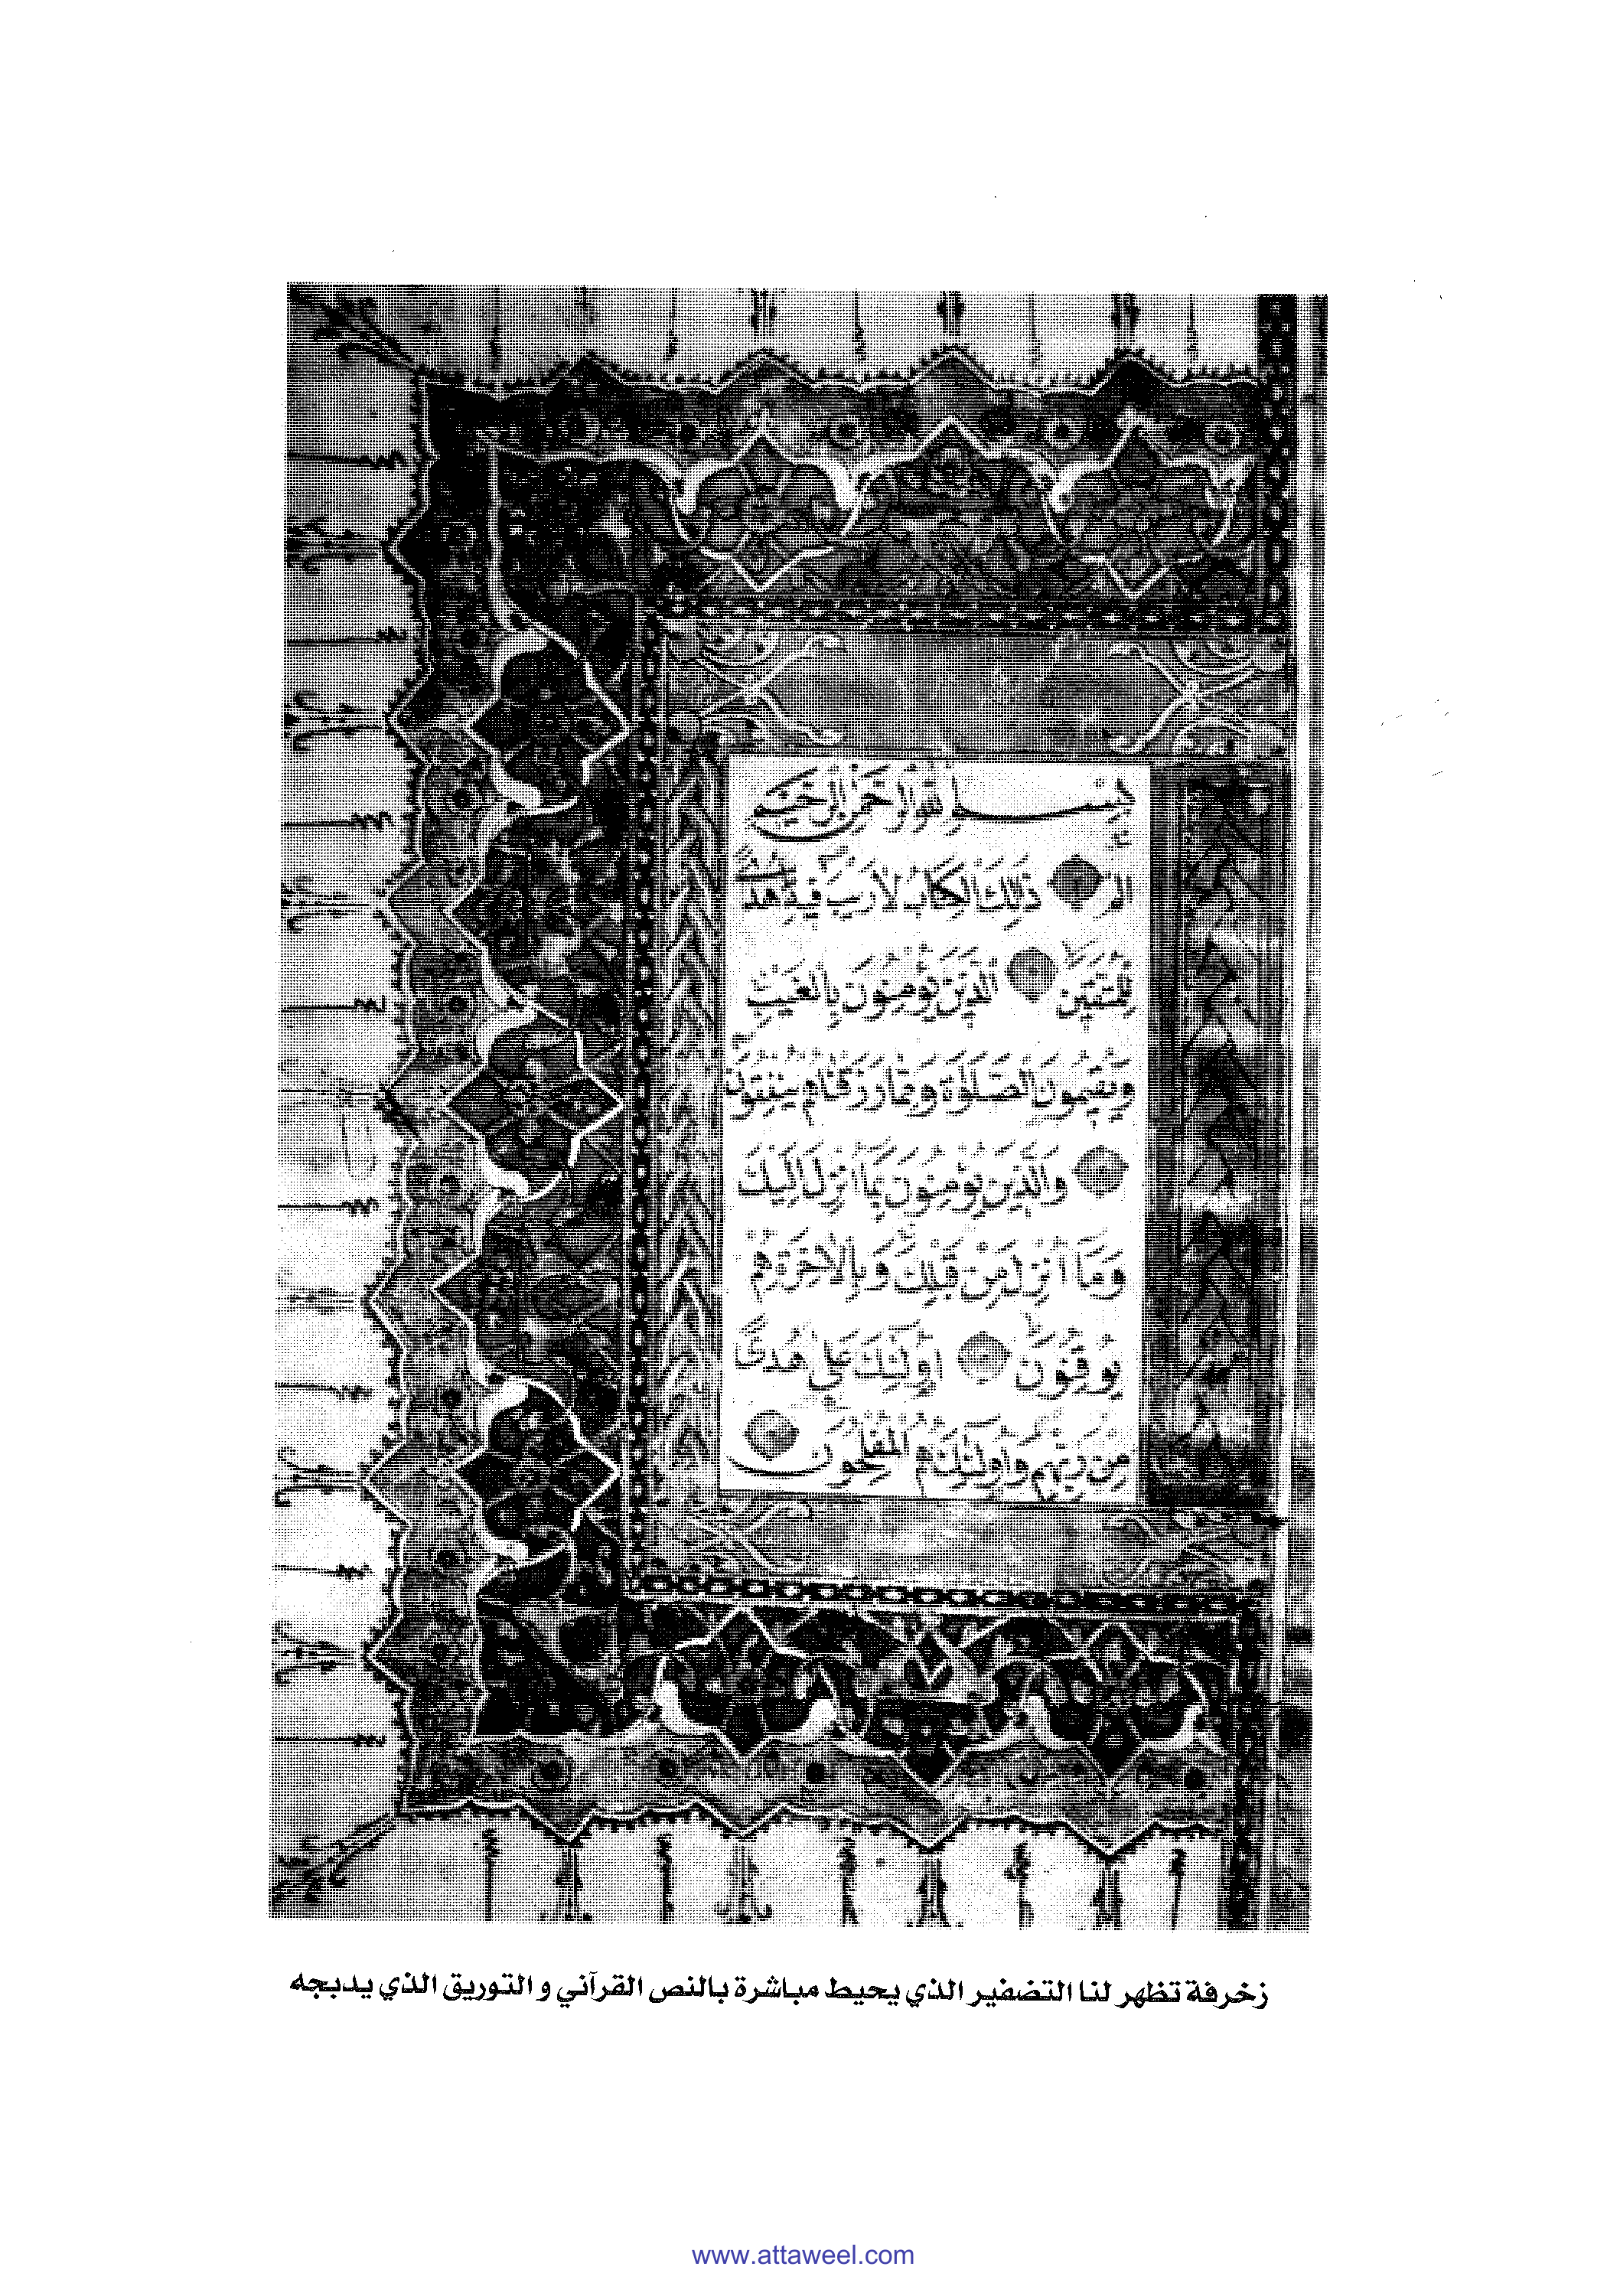 بِسْمِ اللهِ الرَّحْمٰنِ الرَّحِيمِ
الم ذٰلِكَ الْكِتَابُ لَا رَيْبَ فِيهِ هُدًى
لِلْمُتَّقِينَ الَّذِينَ يُؤْمِنُونَ بِالْغَيْبِ
وَيُقِيمُونَ الصَّلٰوةَ وَمِمَّا رَزَقْنَاهُمْ يُنْفِقُونَ
وَالَّذِينَ يُؤْمِنُونَ بِمَا أُنْزِلَ إِلَيْكَ
وَمَا أُنْزِلَ مِنْ قَبْلِكَ وَبِالْآخِرَةِ هُمْ
يُوقِنُونَ أُولٰئِكَ عَلَى هُدًى
مِنْ رَبِّهِمْ وَأُولٰئِكَ هُمُ الْمُفْلِحُونَ
زخرفة تظهر لنا التضفير الذي يحيط مباشرة بالنص القرآني و التوريق الذي يدبجه
www.attaweel.com